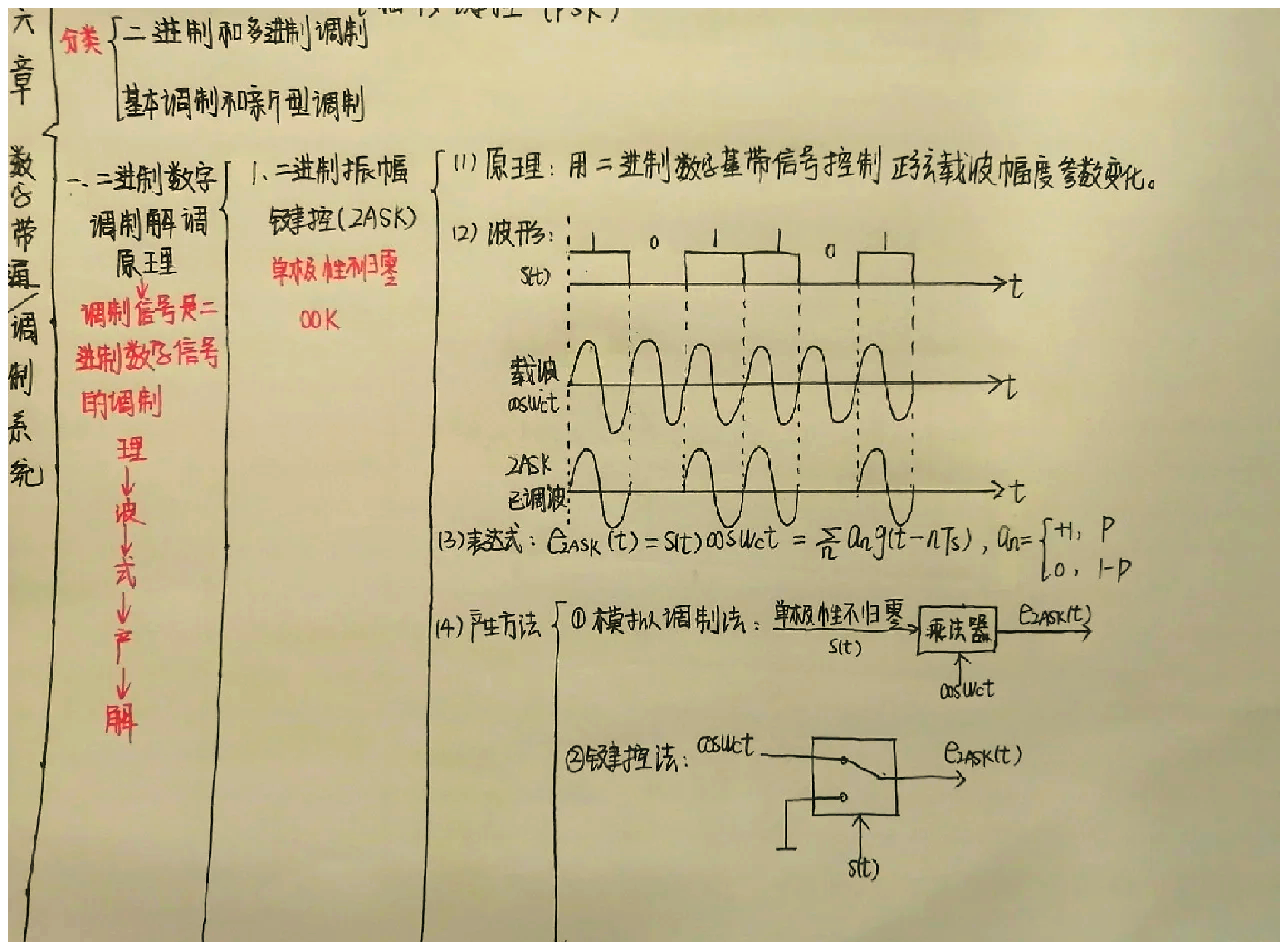 六章 数字带通/调制系统
(PSK)
分类
二进制和多进制调制
基本调制和新型调制
一、二进制数字
调制解调
原理
调制信号是二
进制数字信号
的调制
理
波
式
产
解
1、二进制振幅
键控(2ASK)
单极性不归零
OOK
(1) 原理：用二进制数字基带信号控制正弦载波幅度参数变化。
(2) 波形：
1 0 1 1 0 1
S(t)
t
载波
cosWct
t
2ASK
已调波
t
(3)表达式：e2ASK(t)=S(t)cosWct=∑n an g(t-nTs), an={+1, P
0, 1-P
(4)产生方法
①模拟调制法：单极性不归零
S(t)
乘法器
e2ASK(t)
cosWct
②键控法：cosWct
e2ASK(t)
S(t)